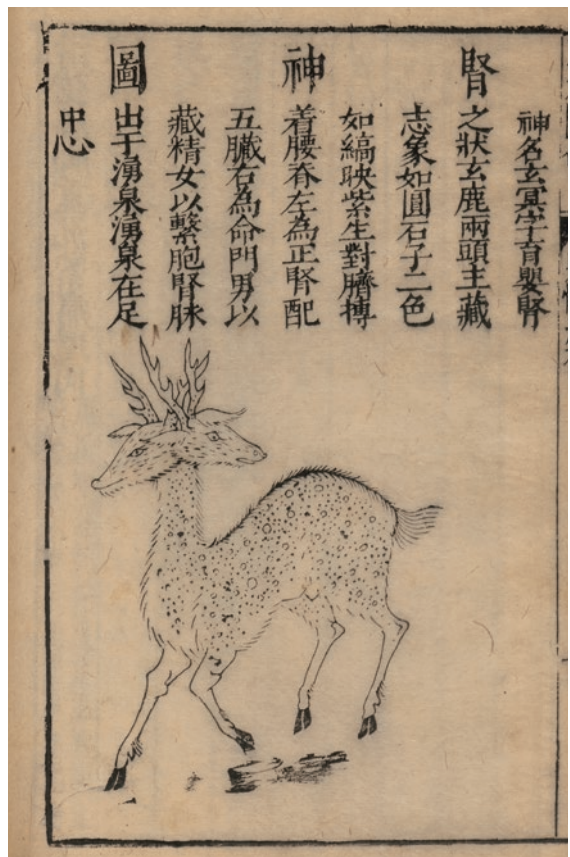 腎神圖
神名玄冥字育嬰腎
之狀玄鹿兩頭主藏
志象如圓石子二色
如縞映紫生對臍搏
着腰脊左為正腎配
五臟右為命門男以
藏精女以繫胞腎脉
出于湧泉湧泉在足
中心